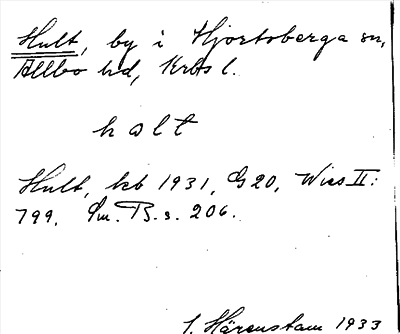 Hult, by i Hjortsberga sn,
Allbo hd, Krbs l.
halt
Hult, kb 1931, G20, Wies II:
799. Sm. B. s. 206.
I. Härenstam 1933